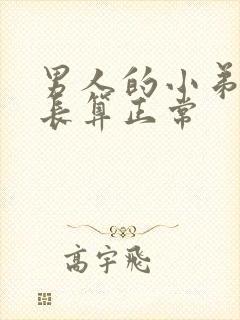 男人的小弟
长算正常
高宇飛